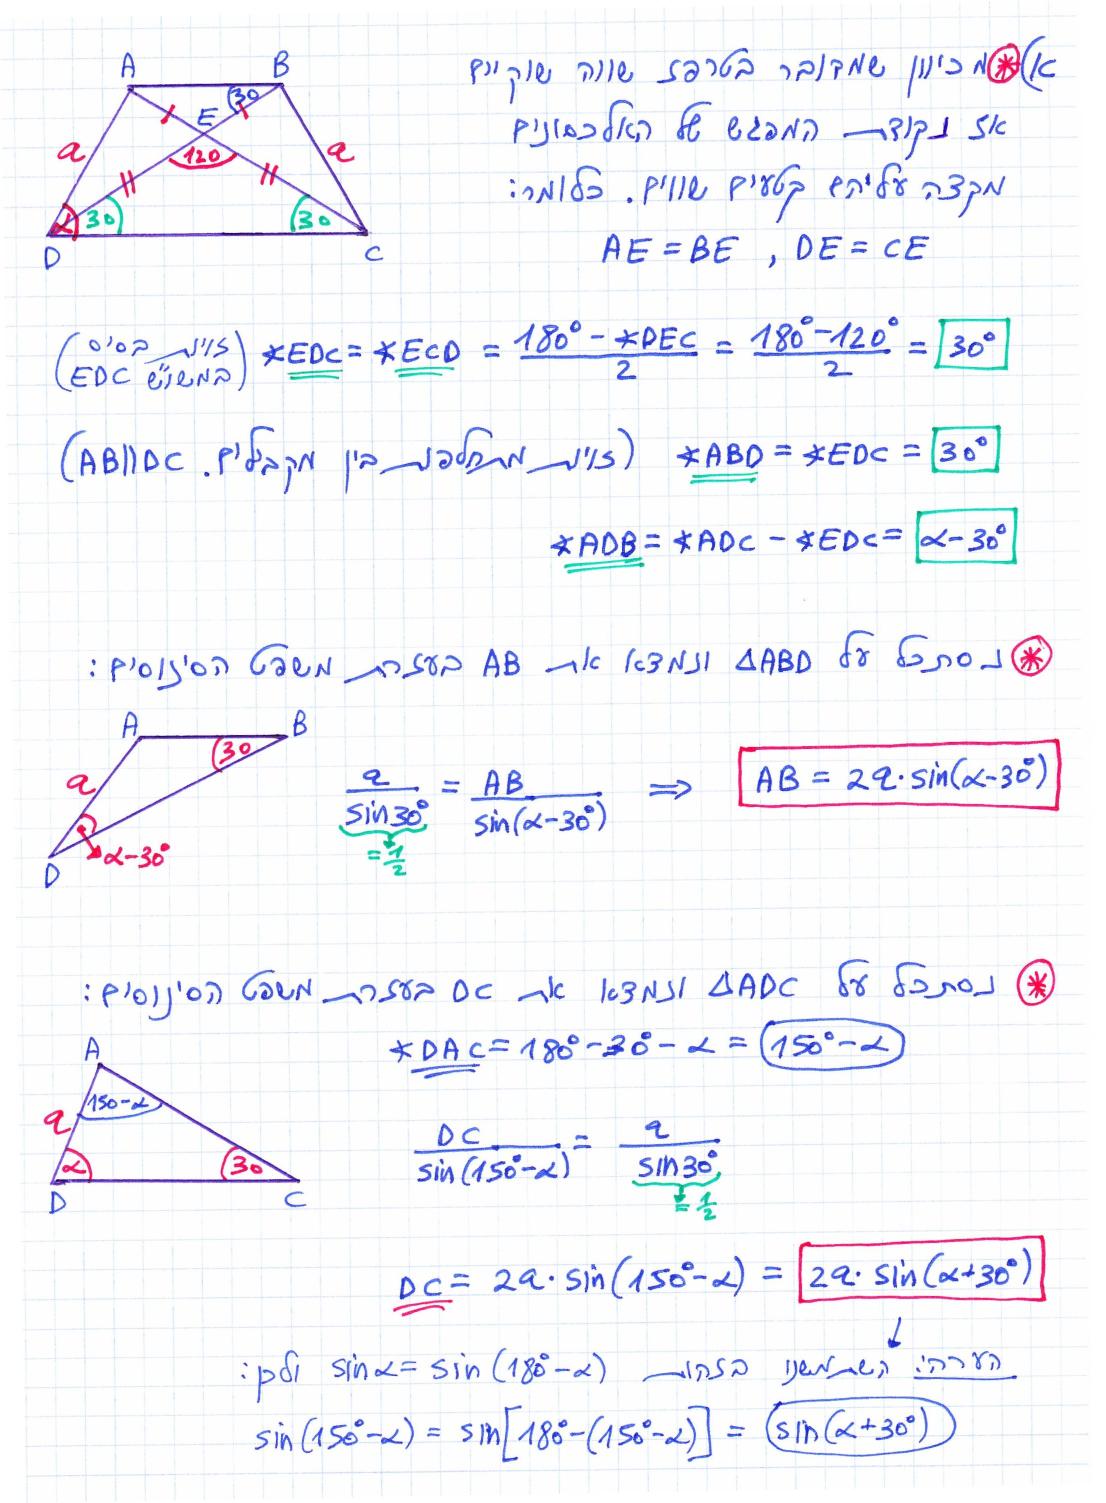 א) * מכיוון שמדובר בטרפז שווה שוקיים
אז נקודת המפגש של האלכסונים
מקצה עליהם קטעים שווים. כלומר:
AE = BE , DE = CE
A B E 30 120 a a α 30 30 D C
∢EDC = ∢ECD = (180° - ∢DEC)/2 = (180° - 120°)/2 = 30° (זוית בסיס במשו"ש EDC)
∢ABD = ∢EDC = 30° (זוית מתחלפות בין מקבילים. AB||DC)
∢ADB = ∢ADC - ∢EDC = α - 30°
* נסתכל על ΔABD ונמצא את AB בעזרת משפט הסינוסים:
A B 30 a D α-30°
a/sin30° = AB/sin(α-30°) ⟹ AB = 2a·sin(α-30°)
= 1/2
* נסתכל על ΔADC ונמצא את DC בעזרת משפט הסינוסים:
∢DAC = 180° - 30° - α = 150° - α
A 150-α a α 30 D C
DC/sin(150°-α) = a/sin30°
= 1/2
DC = 2a·sin(150°-α) = 2a·sin(α+30°)
הערה: השתמשנו בזהות sinα = sin(180°-α) ולכן:
sin(150°-α) = sin[180°-(150°-α)] = sin(α+30°)